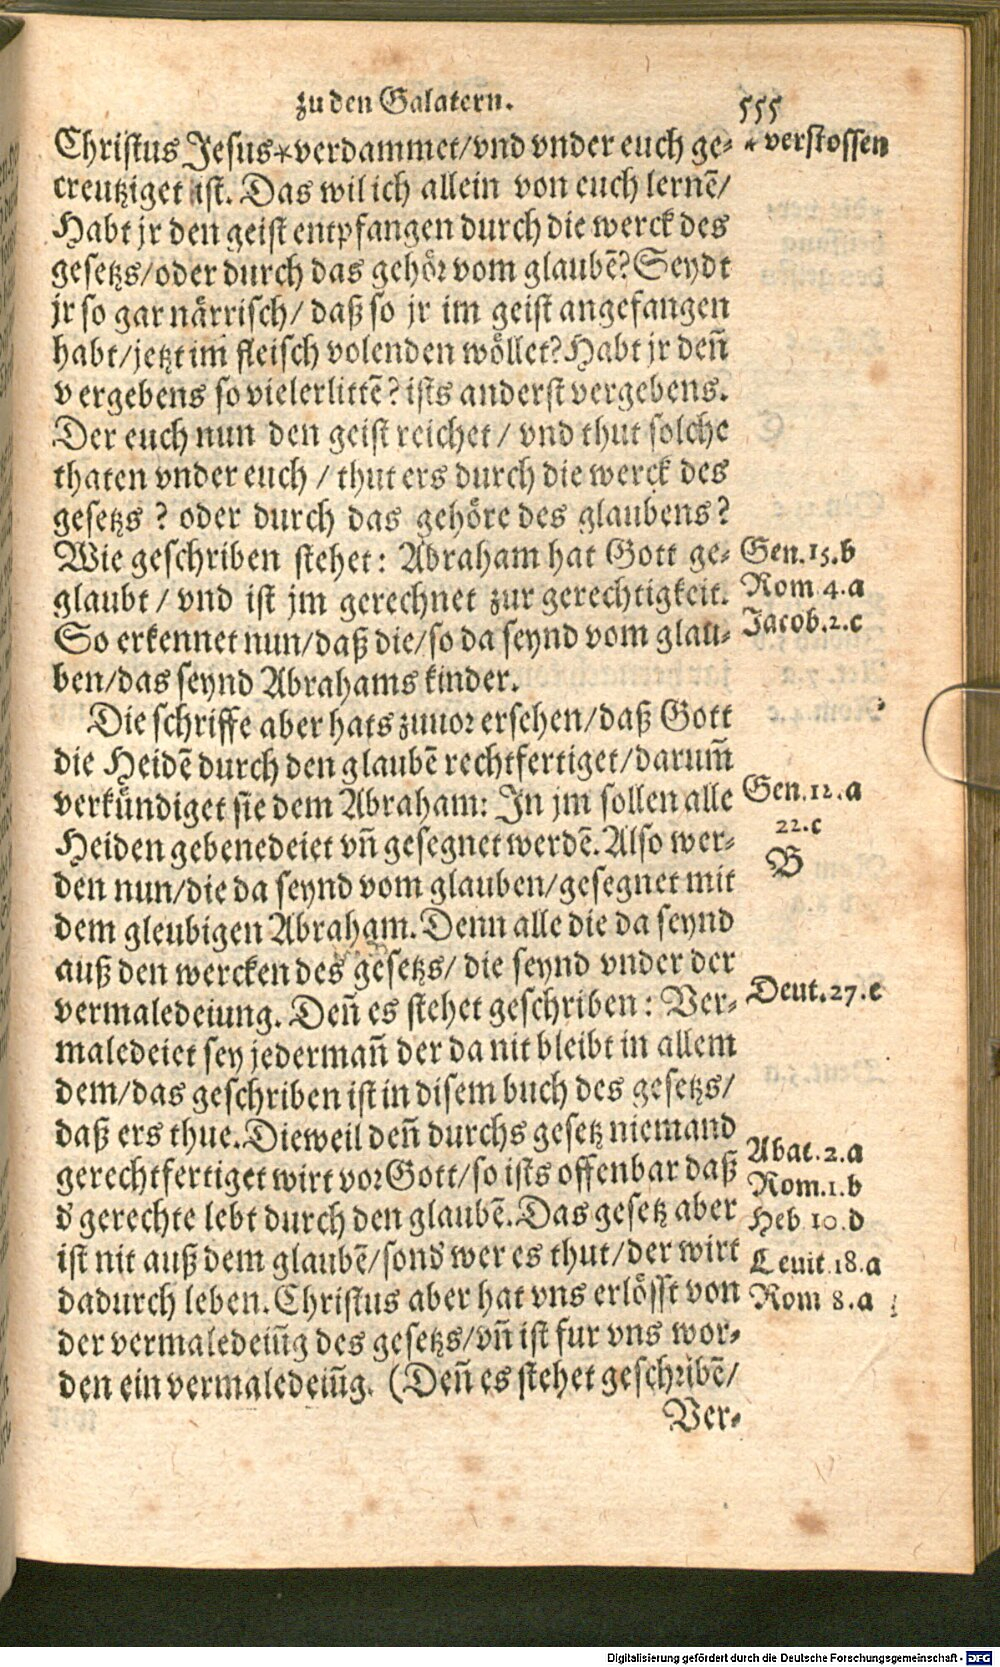 zu den Galatern. 555
Christus Jesus*verdammet/vnd vnder euch ge- * verstossen
creutziget ist. Das wil ich allein von euch lernẽ/
Habt jr den geist entpfangen durch die werck des
gesetzs/oder durch das gehör vom glaubẽ? Seydt
jr so gar närrisch/ daß so jr im geist angefangen
habt/jetzt im fleisch volenden wöllet? Habt jr deñ
vergebens so viel erlittẽ? ists anderst vergebens.
Der euch nun den geist reichet / vnd thut solche
thaten vnder euch / thut ers durch die werck des
gesetzs ? oder durch das gehöre des glaubens?
Wie geschriben stehet: Abraham hat Gott ge- Gen.15.b
glaubt / vnd ist jm gerechnet zur gerechtigkeit. Rom 4.a
So erkennet nun/daß die/so da seynd vom glau- Jacob.2.c
ben/das seynd Abrahams kinder.
Die schrifft aber hats zuuor ersehen/daß Gott
die Heidẽ durch den glaubẽ rechtfertiget/darum̃
verkündiget sie dem Abraham: In jm sollen alle Gen.12.a
Heiden gebenedeiet vñ gesegnet werdẽ. Also wer- 22.c
den nun/die da seynd vom glauben/gesegnet mit B
dem gleubigen Abraham. Denn alle die da seynd
auß den wercken des gesetzs/ die seynd vnder der
vermaledeiung. Deñ es stehet geschriben: Ver- Deut.27.c
maledeiet sey jedermañ der da nit bleibt in allem
dem/das geschriben ist in disem buch des gesetzs/
daß ers thue. Dieweil deñ durchs gesetz niemand
gerechtfertiget wirt vor Gott/so ists offenbar daß Abac.2.a
d' gerechte lebt durch den glaubẽ. Das gesetz aber Rom.1.b
Heb 10.d
ist nit auß dem glaubẽ/sond' wer es thut/der wirt Leuit.18.a
dadurch leben. Christus aber hat vns erlösst von Rom 8.a
der vermaledeiũg des gesetzs/vñ ist fur vns wor-
den ein vermaledeiũg. (Deñ es stehet geschribẽ/
Ver-
Digitalisierung gefördert durch die Deutsche Forschungsgemeinschaft - DFG